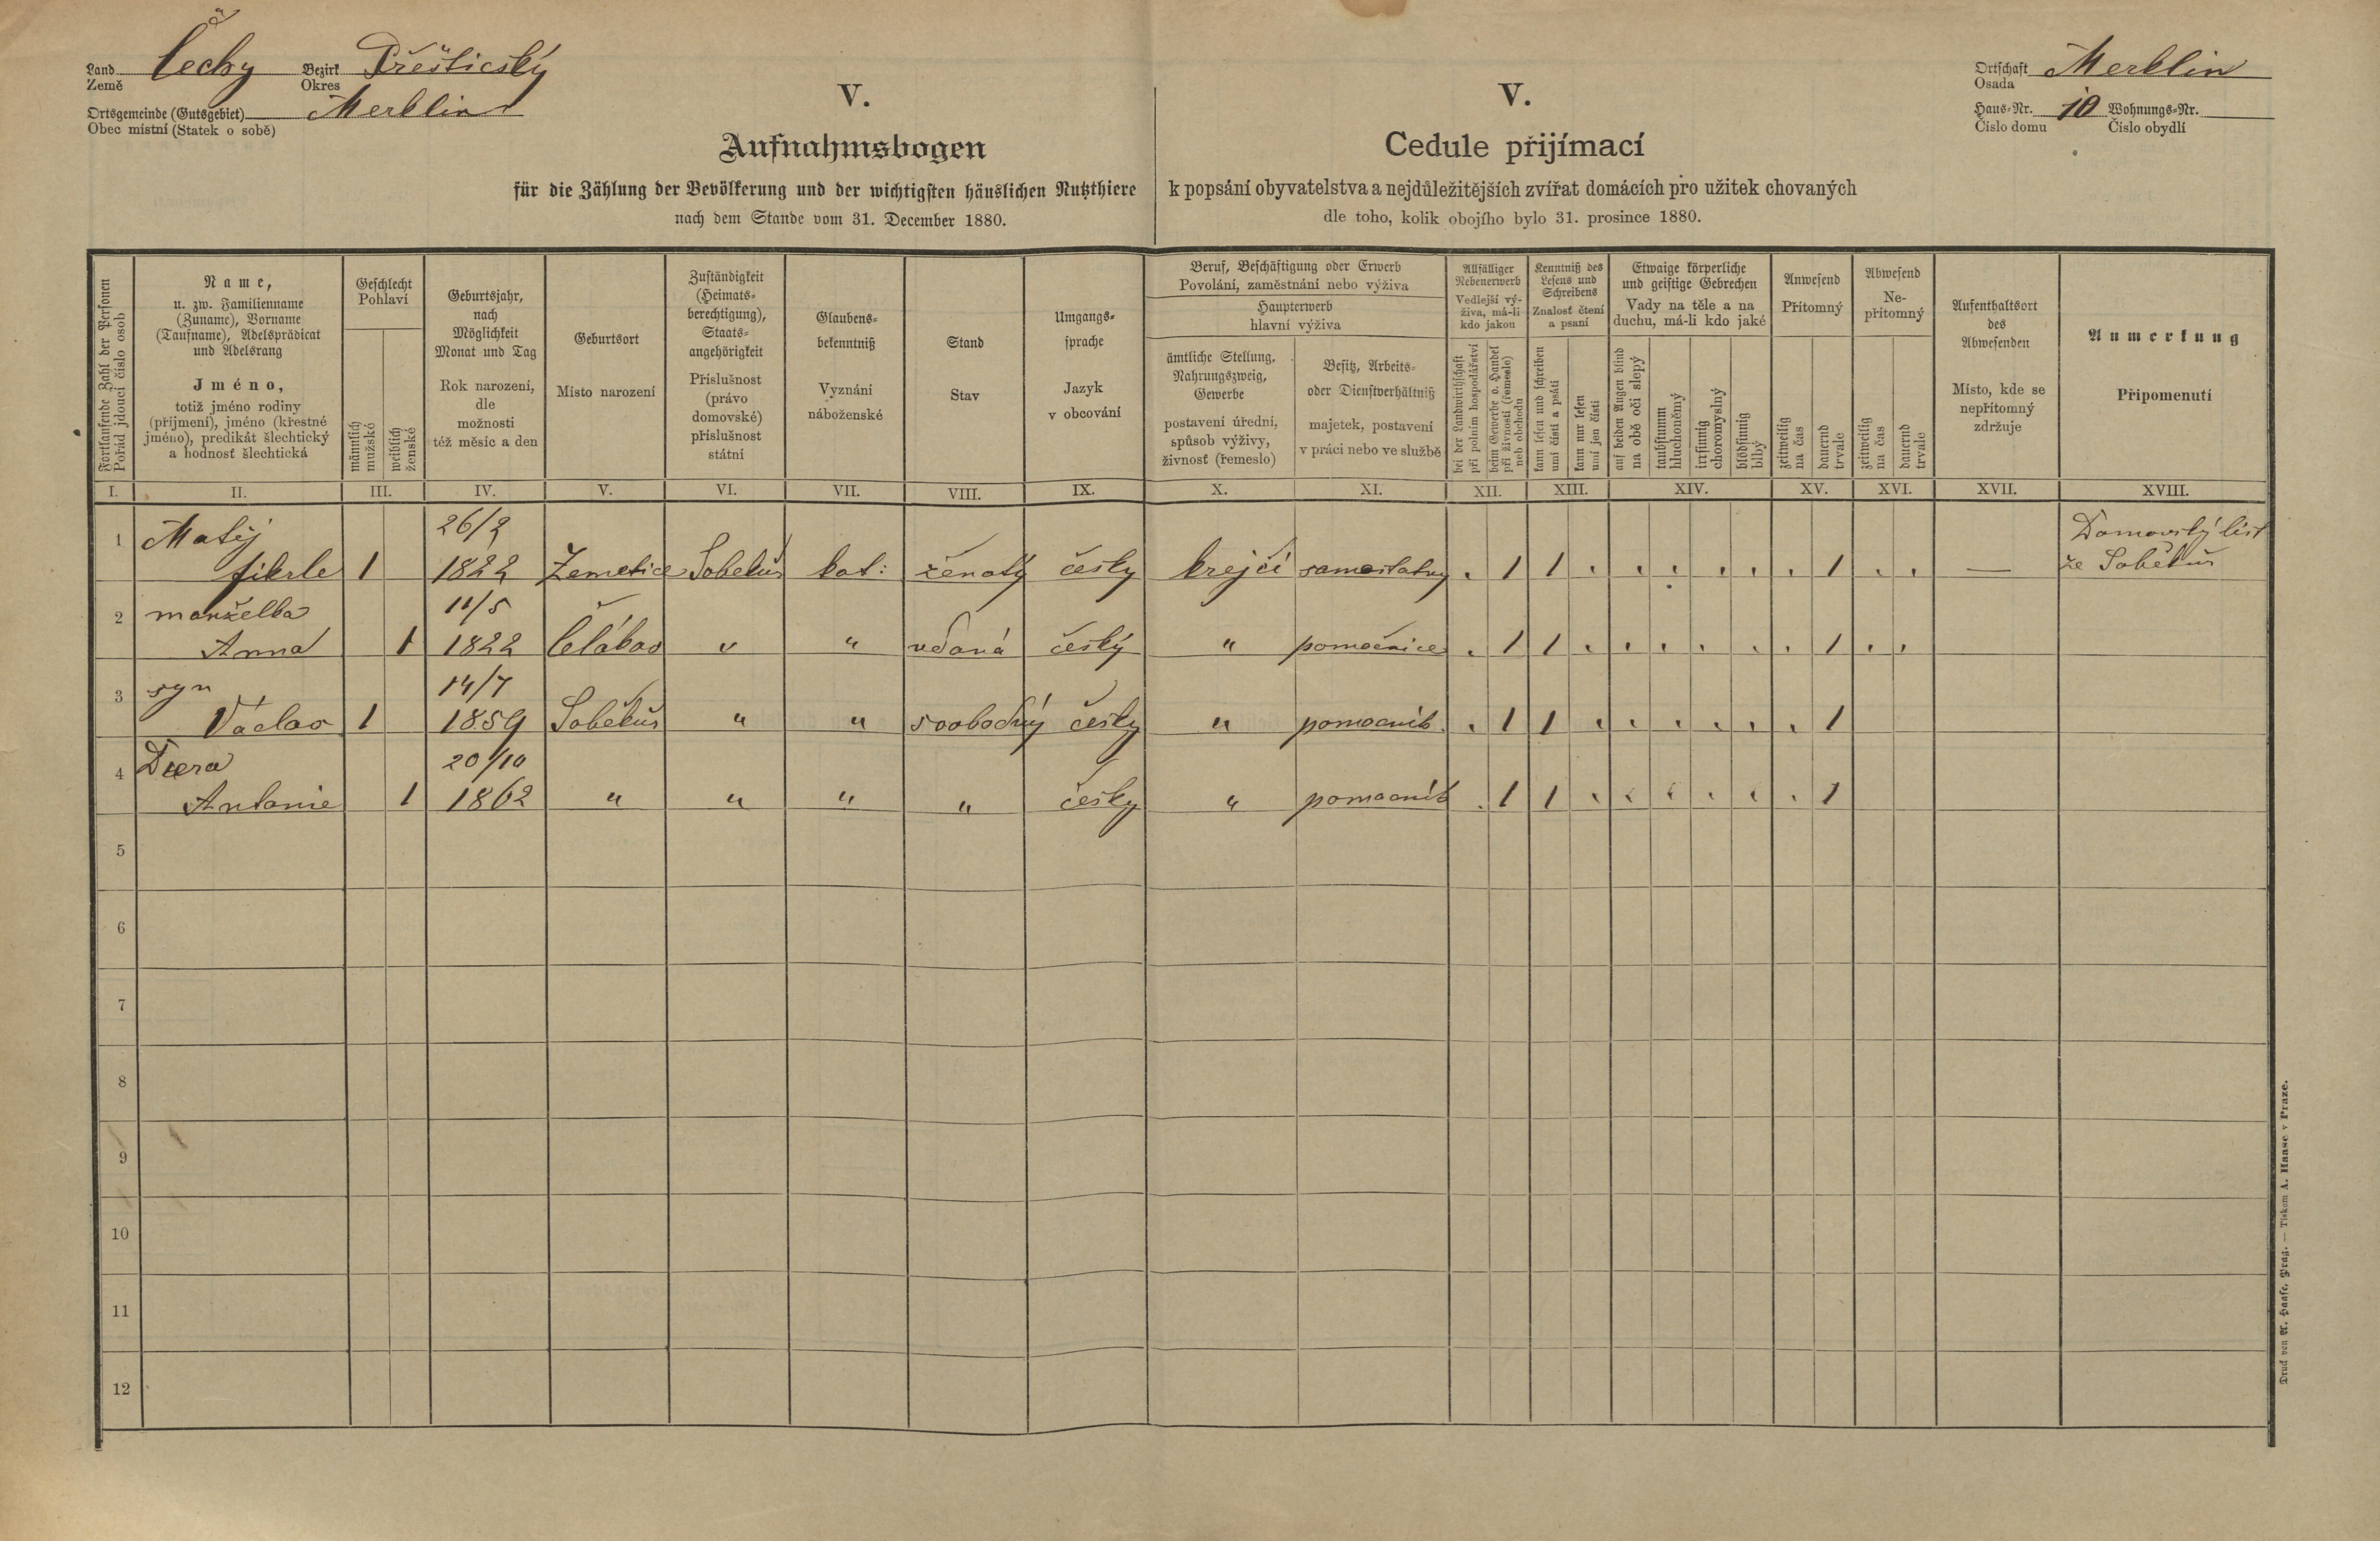 Land Čechy Bezirk Přěštický
Země Okres
Ortsgemeinde (Gutsgebiet) Merklin
Obec místní (Statek o sobě)
V.
Aufnahmsbogen
für die Zählung der Bevölkerung und der wichtigsten häuslichen Nutzthiere
nach dem Stande vom 31. December 1880.
V.
Cedule přijímací
k popsání obyvatelstva a nejdůležitějších zvířat domácích pro užitek chovaných
dle toho, kolik obojího bylo 31. prosince 1880.
Ortschaft Merklin
Osada
Haus-Nr. 10 Wohnungs-Nr.
Číslo domu Číslo obydlí
Fortlaufende Zahl der Personen
Pořád jdoucí číslo osob
Name,
u. zw. Familienname
(Zuname), Vorname
(Taufname), Adelsprädicat
und Adelsrang
Jméno,
totiž jméno rodiny
(příjmení), jméno (křestné
jméno), predikát šlechtický
a hodnosť šlechtická
Geschlecht
Pohlaví
männlich
mužské
weiblich
ženské
Geburtsjahr,
nach
Möglichkeit
Monat und Tag
Rok narození,
dle
možnosti
též měsíc a den
Geburtsort
Místo narození
Zuständigkeit
(Heimats-
berechtigung),
Staats-
angehörigkeit
Příslušnost
(právo
domovské)
příslušnost
státní
Glaubens-
bekenntniß
Vyznání
náboženské
Stand
Stav
Umgangs-
sprache
Jazyk
v obcování
Beruf, Beschäftigung oder Erwerb
Povolání, zaměstnání nebo výživa
Haupterwerb
hlavní výživa
ämtliche Stellung,
Nahrungszweig,
Gewerbe
postavení úřední,
spůsob výživy,
živnosť (řemeslo)
Besitz, Arbeits-
oder Dienstverhältniß
majetek, postavení
v práci nebo ve službě
Allfälliger
Nebenerwerb
Vedlejší vý-
živa, má-li
kdo jakou
bei der Landwirthschaft
při polním hospodářství
beim Gewerbe o. Handel
při živnosti (řemesle)
neb obchodu
Kenntniß des
Lesens und
Schreibens
Znalosť čtení
a psaní
kann lesen und schreiben
umí čísti a psáti
kann nur lesen
umí jen čísti
Etwaige körperliche
und geistige Gebrechen
Vady na těle a na
duchu, má-li kdo jaké
auf beiden Augen blind
na obě oči slepý
taubstumm
hluchoněmý
irrsinnig
choromyslný
blödsinnig
blbý
Anwesend
Přítomný
zeitweilig
na čas
dauernd
trvale
Abwesend
Ne-
přítomný
zeitweilig
na čas
dauernd
trvale
Aufenthaltsort
des
Abwesenden
Místo, kde se
nepřítomný
zdržuje
Anmerkung
Připomenutí
I. II. III. IV. V. VI. VII. VIII. IX. X. XI. XII. XIII. XIV. XV. XVI. XVII. XVIII.
1 Matěj 26/2 Domovský list
fikrle 1 1822 Žemetice Soběkuř kat: ženatý česky krejčí samostatny . 1 1 . . . . . . 1 . . — ze Soběkuř
2 manželka 11/5
Anna 1 1822 v " vdaná český " pomocnice . 1 1 . . . . . . 1 . .
3 syn 14/7
Václav 1 1859 Soběkuř " " svobodný česky " pomocník . 1 1 . . . . . . 1
4 Dcera 20/10
Antonie 1 1862 " " " " česky " pomocník . 1 1 . . . . . . 1
5
6
7
8
9
10
11
12
Druck von A. Haase, Prag. — Tiskem A. Haase v Praze.